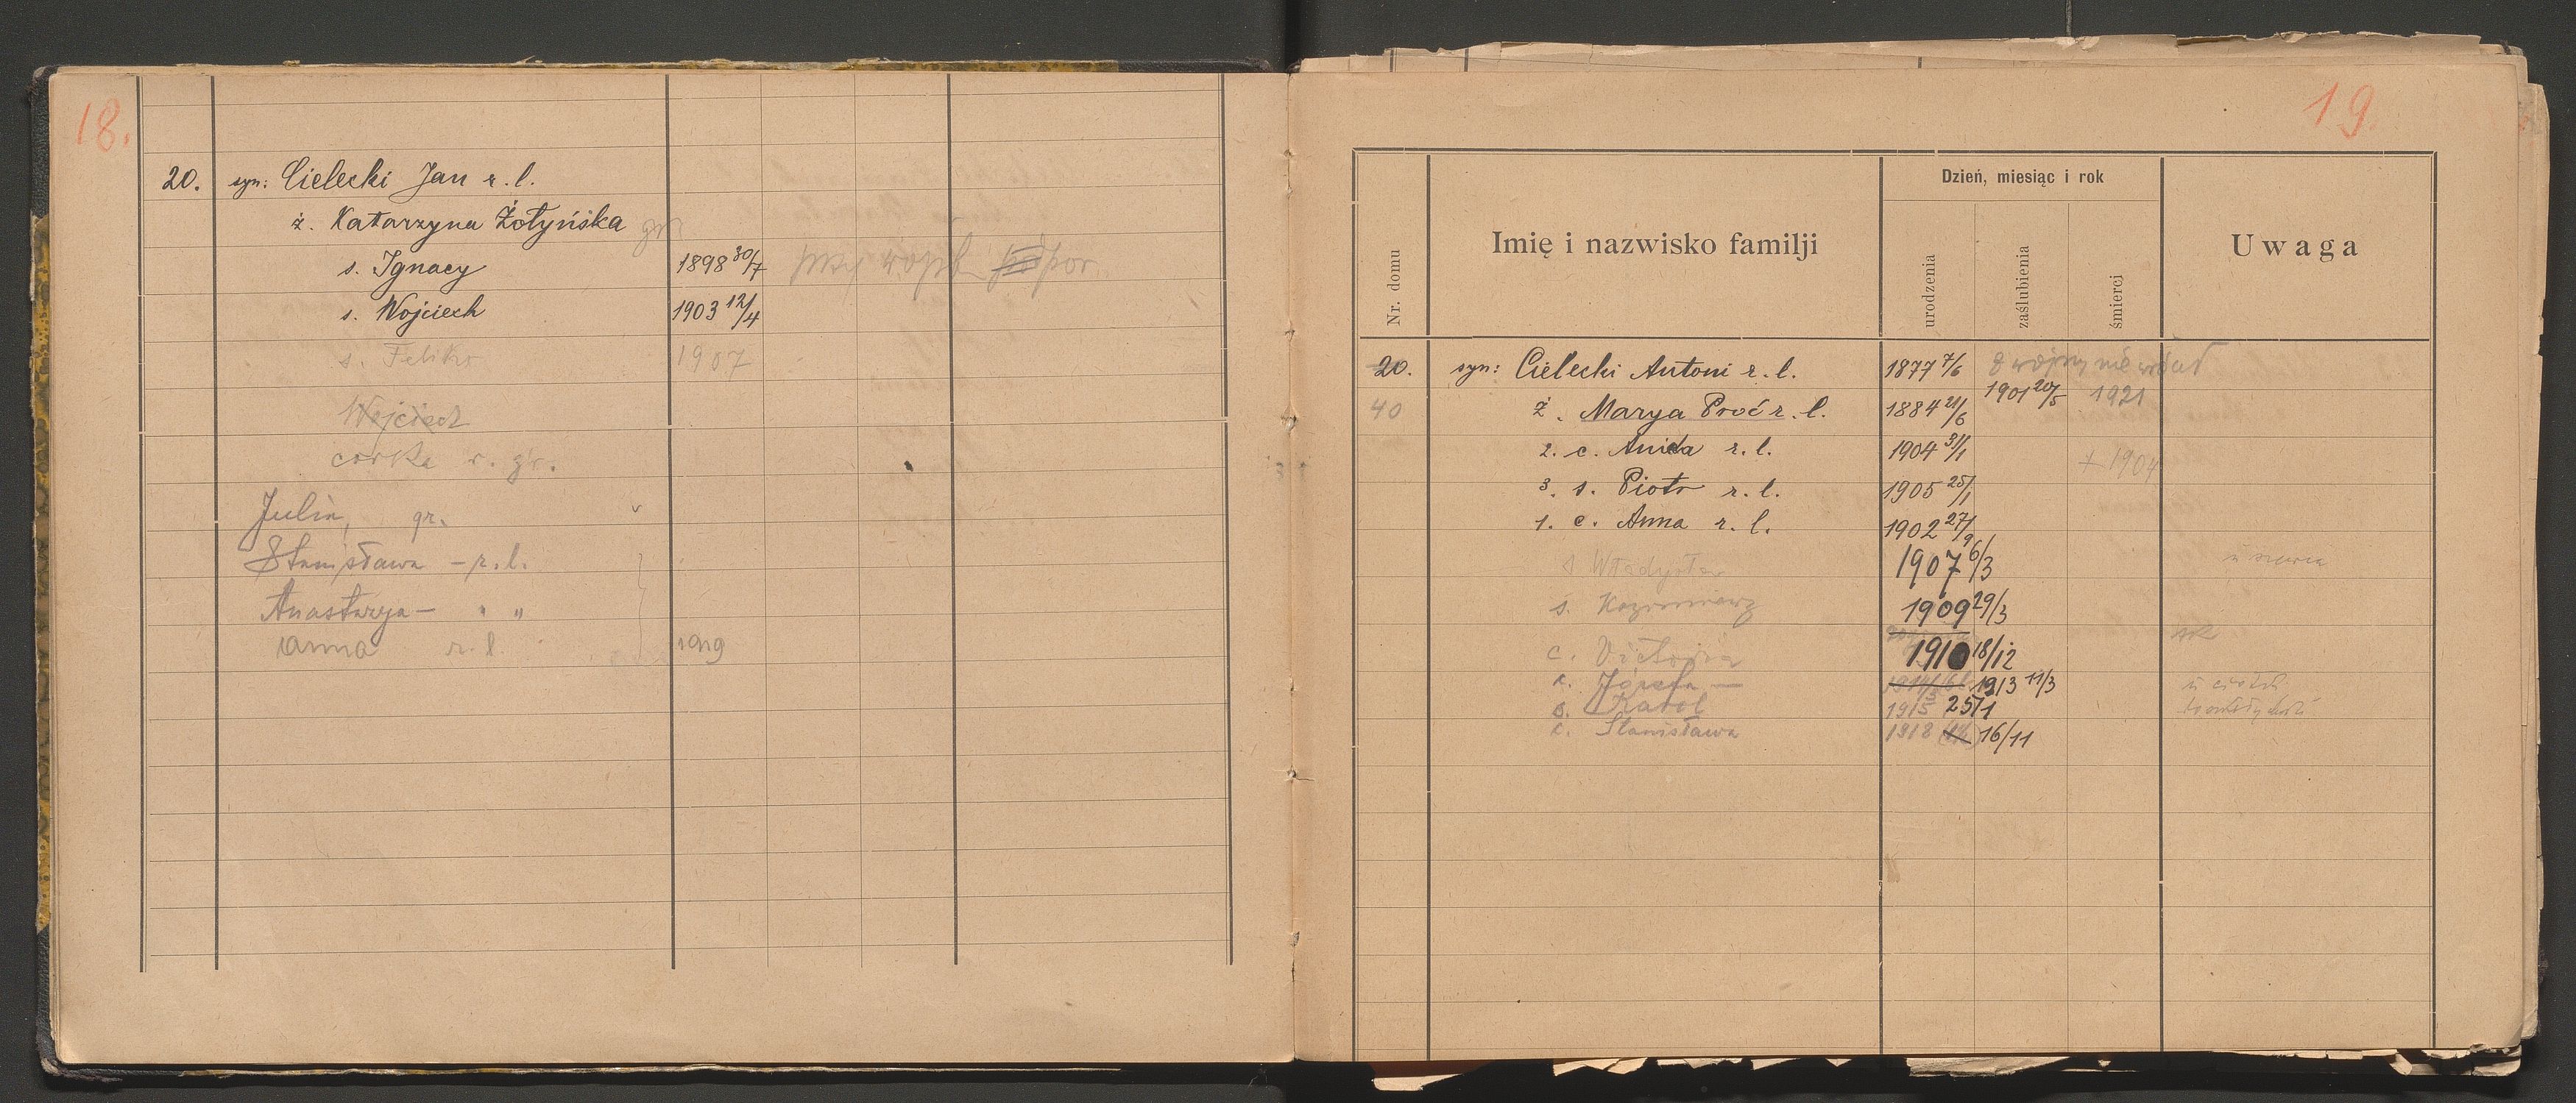 18.
20. syn: Cielecki Jan r. l.
ż. Katarzyna Żołyńska gr
s. Ignacy 1898 30/7 przy wojsk por.
s. Wojciech 1903 12/4
s. Feliks 1907
Wojciech
corka r. gr.
Julia, gr.
Stanisława - r. l.
Anastazya - " "
Anna r. l. 1919
19.
Nr. domu
Imię i nazwisko familji
Dzień, miesiąc i rok
urodzenia
zaślubienia
śmierci
Uwaga
20. syn: Cielecki Antoni r. l. 1877 7/6 z wojny nie wrócił
40 ż. Marya Proć r. l. 1884 21/6 1901 20/5 1921
2. c. r. l. 1904 31/1 + 1904
3. s. Piotr r. l. 1905 25/1
1. c. Anna r. l. 1902 27/9
s Władysław 1907 6/3
s. Kazimierz 1909 29/3
c. Victoria 1910 18/12
c. Józefa — 1913 11/3
s. Karol 1915 25/1
c. Stanisława 1918 16/11